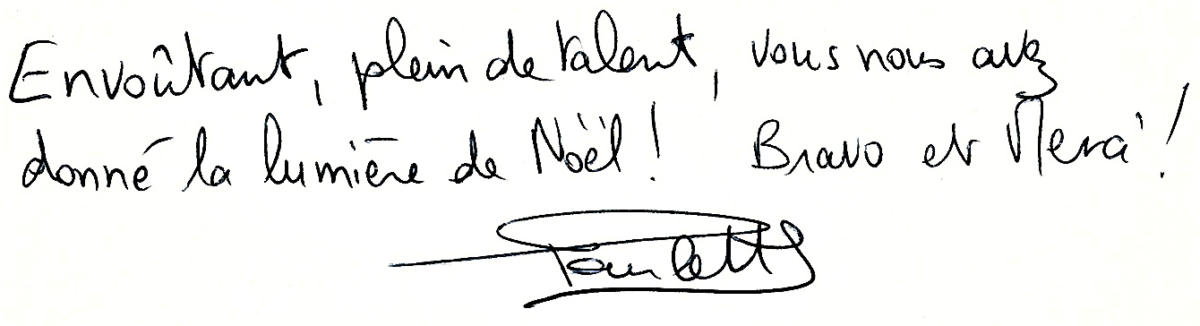 Envoûtant, plein de talent, vous nous avez
donné la lumière de Noël ! Bravo et Merci !